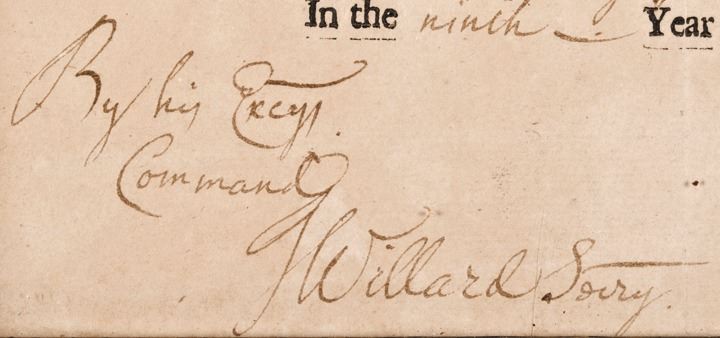 In the ninth Year
By his Excys.
Command
J Willard Secry.